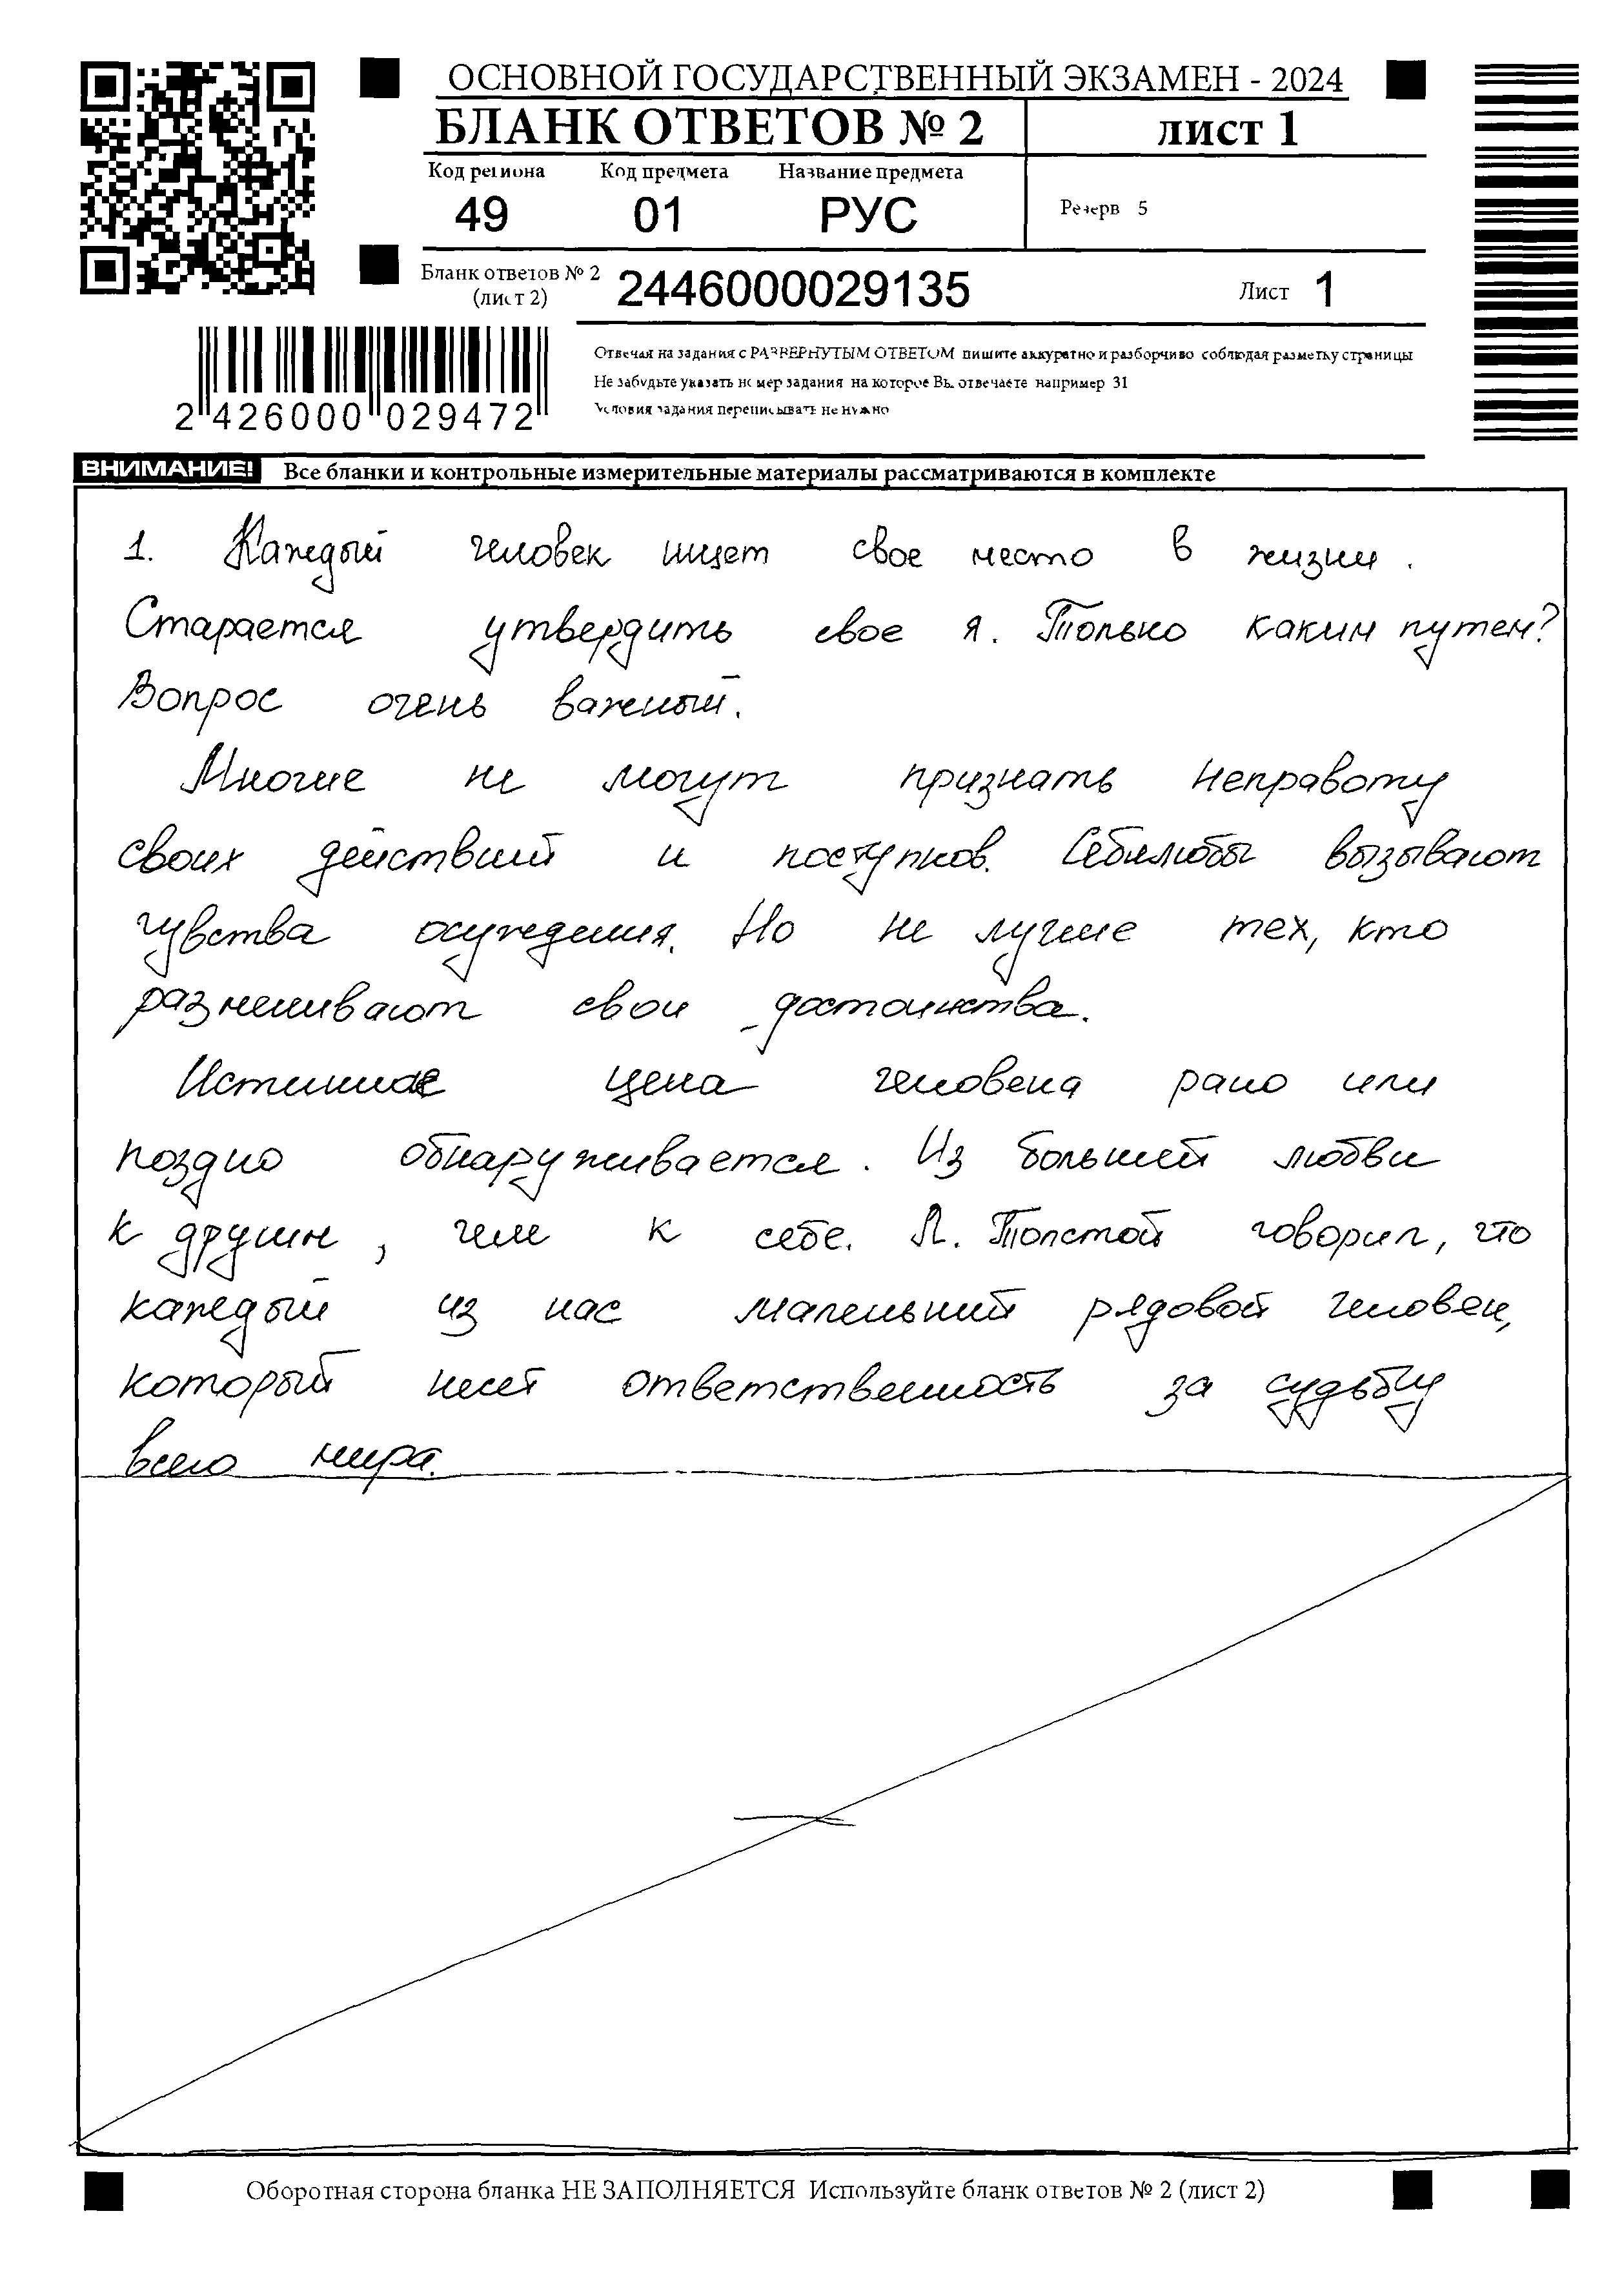 ОСНОВНОЙ ГОСУДАРСТВЕННЫЙ ЭКЗАМЕН - 2024
БЛАНК ОТВЕТОВ № 2 лист 1
Код региона Код предмета Название предмета
49 01 РУС
Резерв 5
Бланк ответов № 2
(лист 2)
2446000029135
Лист 1
Отвечая на задания с РАЗВЕРНУТЫМ ОТВЕТОМ пишите аккуратно и разборчиво соблюдая разметку страницы
Не забудьте указать номер задания на которое Вы отвечаете например 31
Условия задания переписывать не нужно
2 426000 029472
ВНИМАНИЕ! Все бланки и контрольные измерительные материалы рассматриваются в комплекте
1. Каждый человек ищет свое место в жизни.
Старается утвердить свое я. Только каким путем?
Вопрос очень важный.
Многие не могут признать неправоту
своих действий и поступков. Себялюбы вызывают
чувства осуждения. Но не лучше тех, кто
разменивают свои достоинства.
Истинная цена человека рано или
поздно обнаруживается. Из большей любви
к другим, чем к себе. Л. Толстой говорил, что
каждый из нас маленький рядовой человек,
который несет ответственность за судьбу
всего мира.
Оборотная сторона бланка НЕ ЗАПОЛНЯЕТСЯ Используйте бланк ответов № 2 (лист 2)